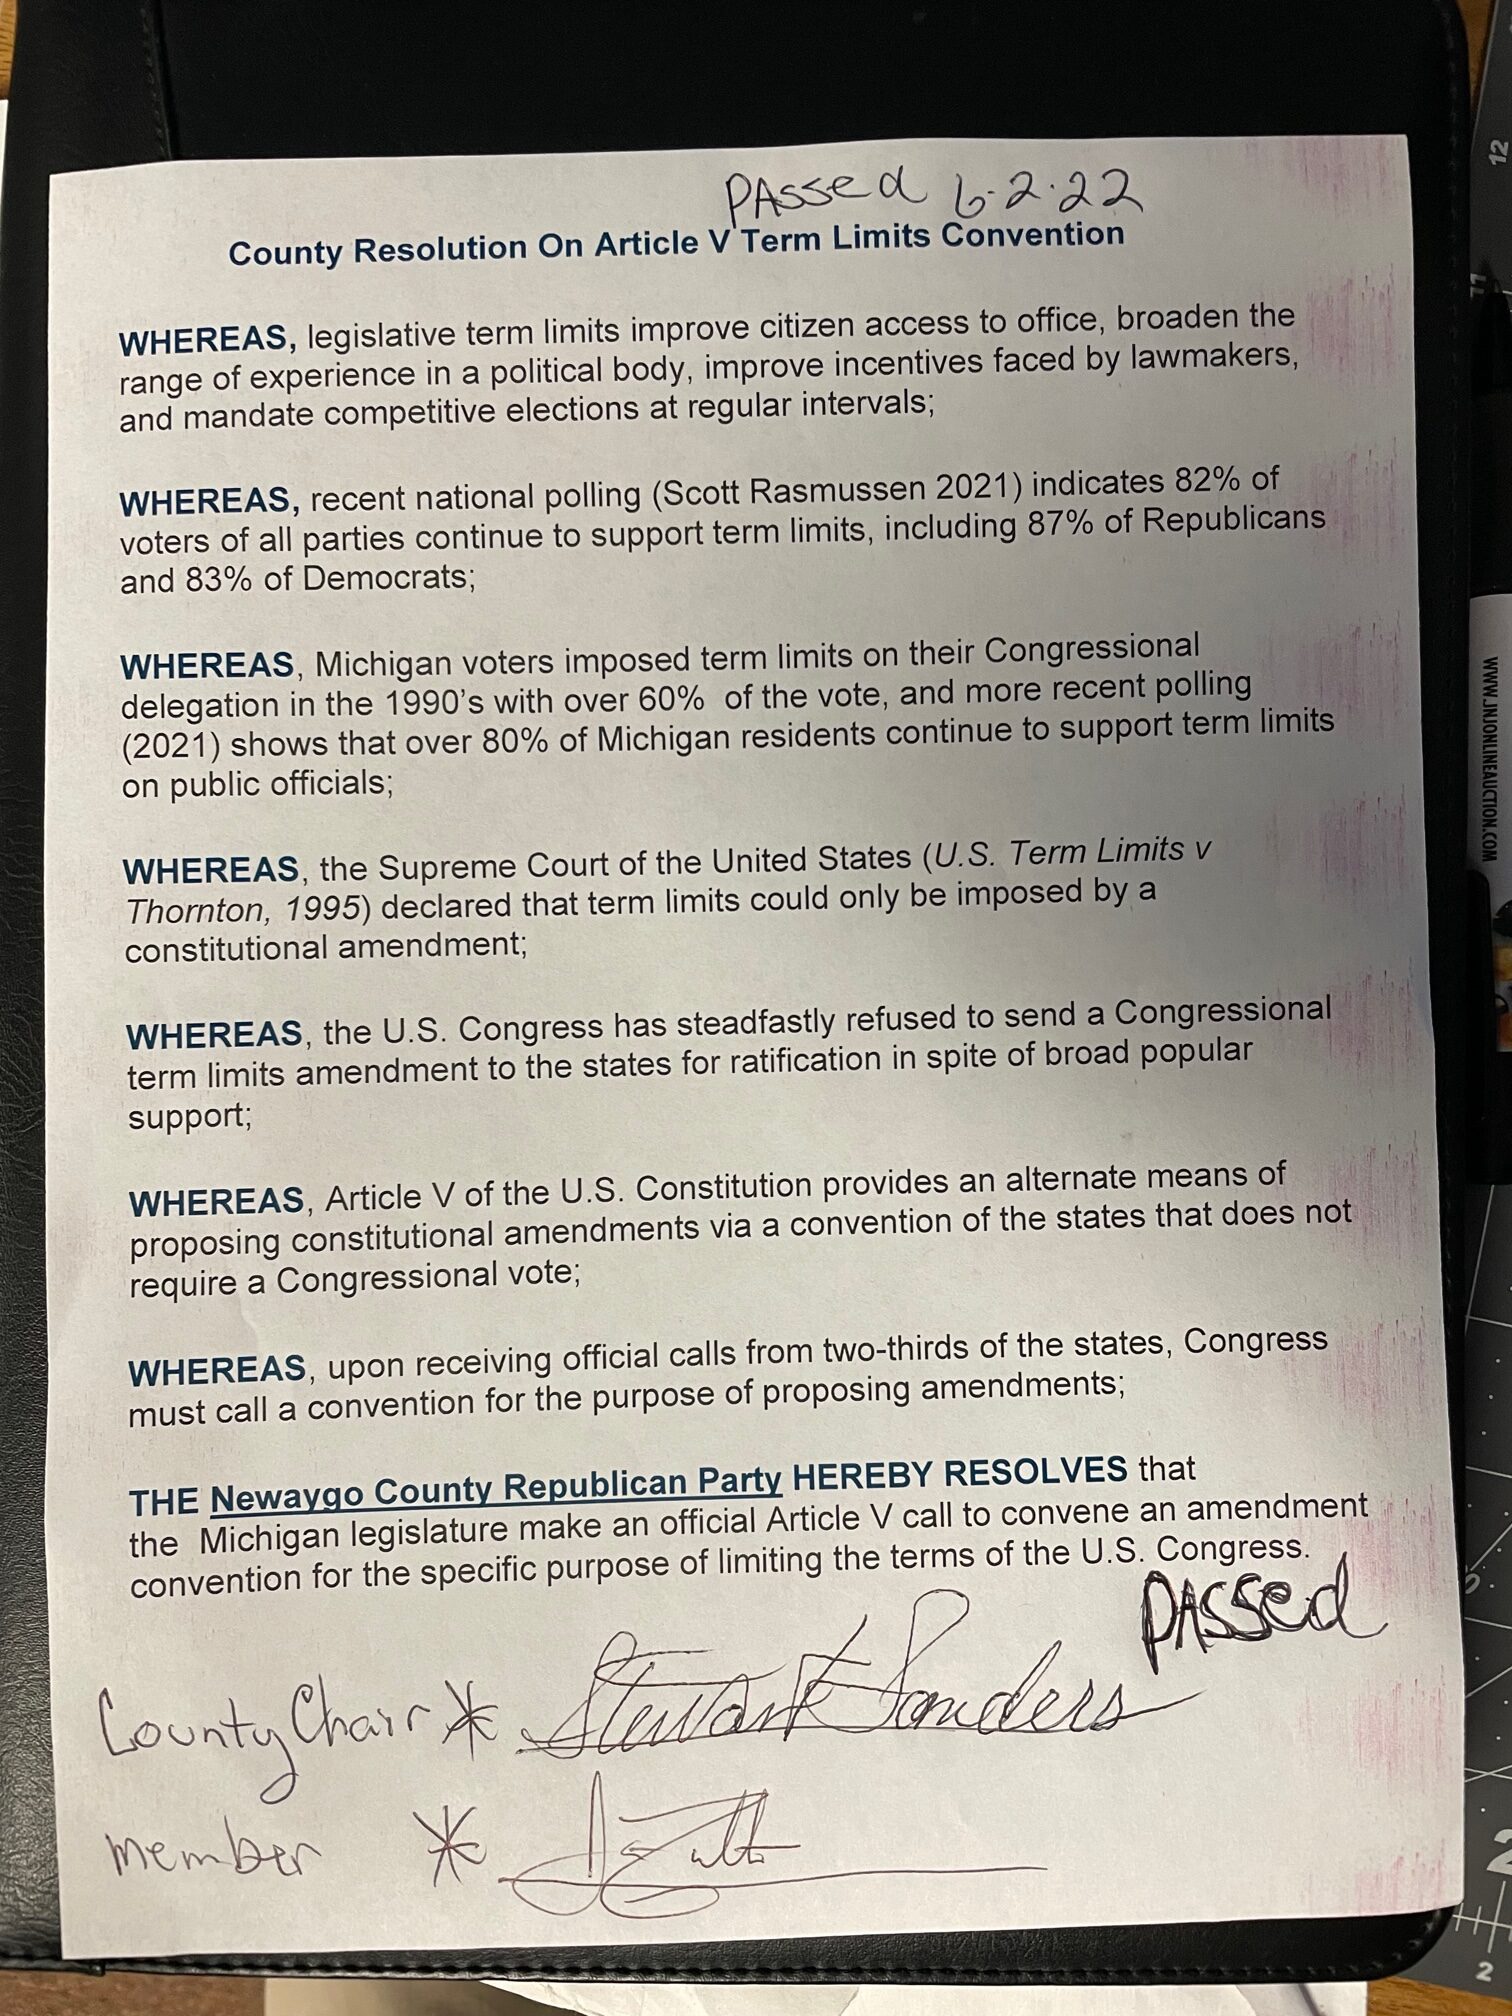 PAssed 6-2-22
County Resolution On Article V Term Limits Convention
WHEREAS, legislative term limits improve citizen access to office, broaden the
range of experience in a political body, improve incentives faced by lawmakers,
and mandate competitive elections at regular intervals;
WHEREAS, recent national polling (Scott Rasmussen 2021) indicates 82% of
voters of all parties continue to support term limits, including 87% of Republicans
and 83% of Democrats;
WHEREAS, Michigan voters imposed term limits on their Congressional
delegation in the 1990's with over 60% of the vote, and more recent polling
(2021) shows that over 80% of Michigan residents continue to support term limits
on public officials;
WHEREAS, the Supreme Court of the United States (U.S. Term Limits v
Thornton, 1995) declared that term limits could only be imposed by a
constitutional amendment;
WHEREAS, the U.S. Congress has steadfastly refused to send a Congressional
term limits amendment to the states for ratification in spite of broad popular
support;
WHEREAS, Article V of the U.S. Constitution provides an alternate means of
proposing constitutional amendments via a convention of the states that does not
require a Congressional vote;
WHEREAS, upon receiving official calls from two-thirds of the states, Congress
must call a convention for the purpose of proposing amendments;
THE Newaygo County Republican Party HEREBY RESOLVES that
the Michigan legislature make an official Article V call to convene an amendment
convention for the specific purpose of limiting the terms of the U.S. Congress.
PASSed
County Chair * Stewart Sanders
member *
WWW.JNJONLINEAUCTION.COM
12
11
2
2